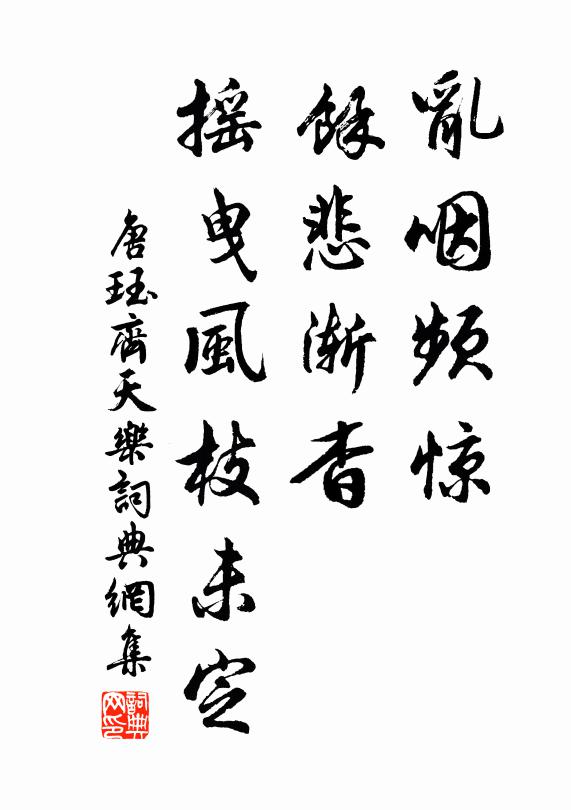 亂咽頻惊
餘悲漸杳
搖曳風枝未定
唐珏齊天樂詞典網集
詞典网印